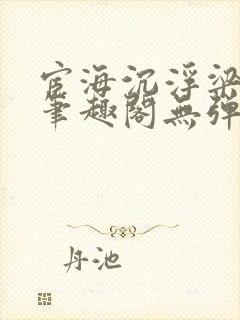 宦海沉浮梁
笔趣阁无弹
丹池